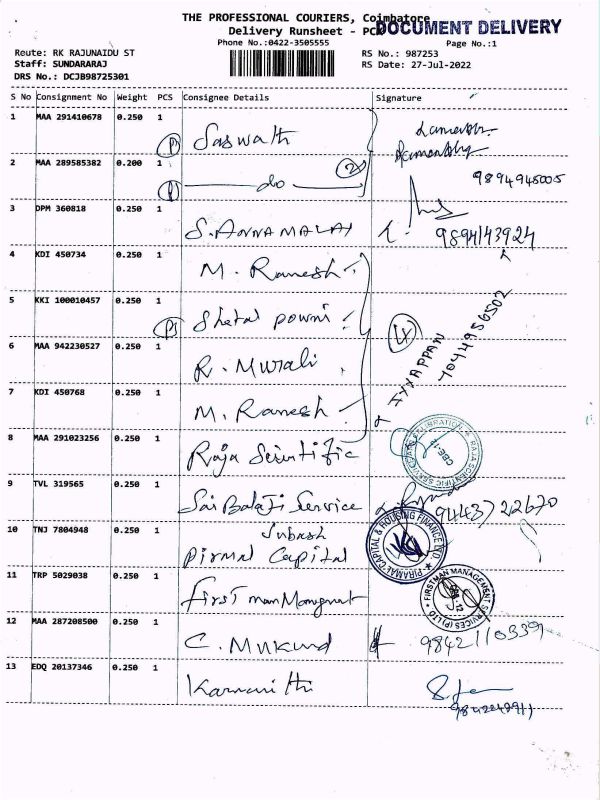 THE PROFESSIONAL COURIERS, Coimbatore
DOCUMENT DELIVERY
Delivery Runsheet - PCD
Phone No.:0422-3505555
Page No.:1
Route: RK RAJUNAIDU ST
RS No.: 987253
Staff: SUNDARARAJ
RS Date: 27-Jul-2022
DRS No.: DCJB98725301
S No Consignment No Weight PCS Consignee Details Signature
1 MAA 291410678 0.250 1 Saswath
2 MAA 289585382 0.200 1 do
9894945005
3 DPM 360818 0.250 1 S. ANNAMALAI
9894143924
4 KDI 450734 0.250 1 M. Ramesh
5 KKI 100010457 0.250 1 Shetal powni
IYYAPPAN
7044956502
6 MAA 942230527 0.250 1 R. Murali
7 KDI 450768 0.250 1 M. Ramesh
8 MAA 291023256 0.250 1 Raja Scientific
9 TVL 319565 0.250 1 Sai Balaji Service
9443722670
10 TNJ 7804948 0.250 1 Subash
Pirmal Capital
PIRAMAL CAPITAL & HOUSING FINANCE LTD.
11 TRP 5029038 0.250 1 First man Mangmant
FIRSTMAN MANAGEMENT SERVICES (P) LTD
12 MAA 287208500 0.250 1 C. Mukund
9842110339
13 EDQ 20137346 0.250 1 Karnanithi
9842242911